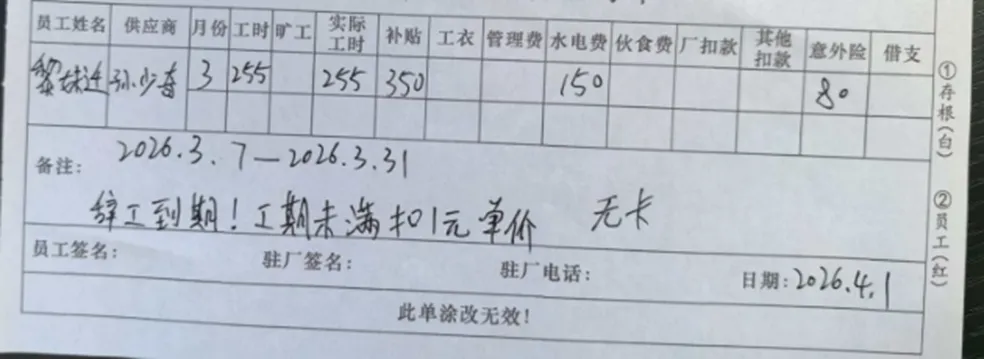 员工姓名 供应商 月份 工时 旷工 实际工时 补贴 工衣 管理费 水电费 伙食费 厂扣款 其他扣款 意外险 借支
黎 孙少 3 255 255 350 150 80
备注: 2026.3.7—2026.3.31
辞工到期!工期未满扣1元单价 无卡
员工签名: 驻厂签名: 驻厂电话: 日期:2026.4.1
此单涂改无效!
①存根(白) ②员工(红)